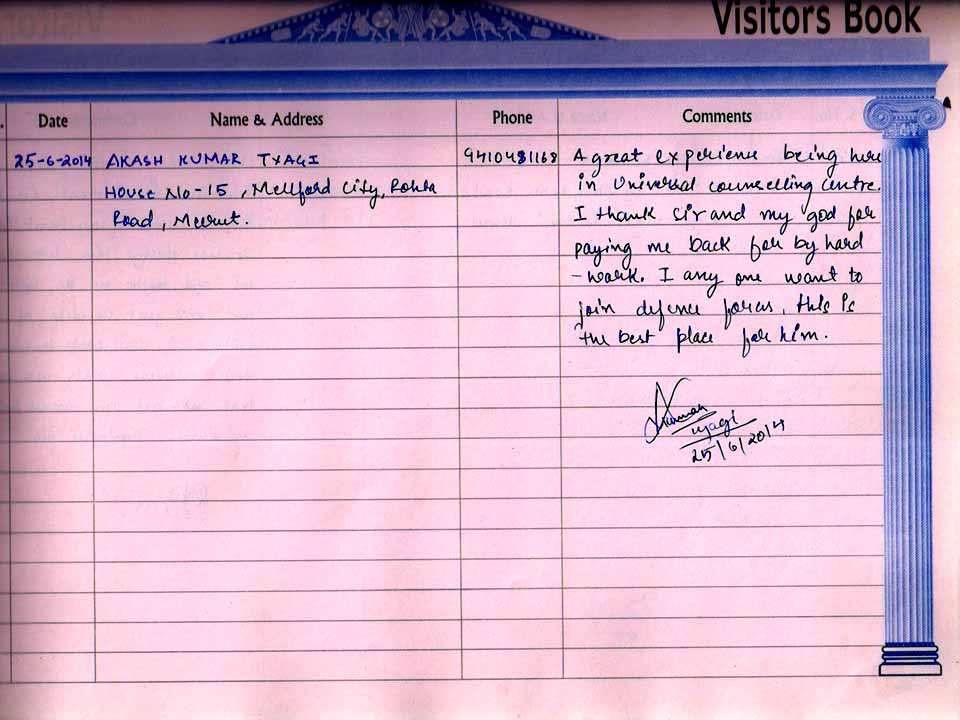 Visitors Book
Date Name & Address Phone Comments
25-6-2014 AKASH KUMAR TYAGI 9410481168 A great experience being here
House No-15, Mellford City, Rohta in Universal counselling Centre.
Road, Meerut. I thank Sir and my god for
paying me back for by hard
-work. I any one want to
join defence forces, this is
the best place for him.
Kumar
tyagi
25/6/2014